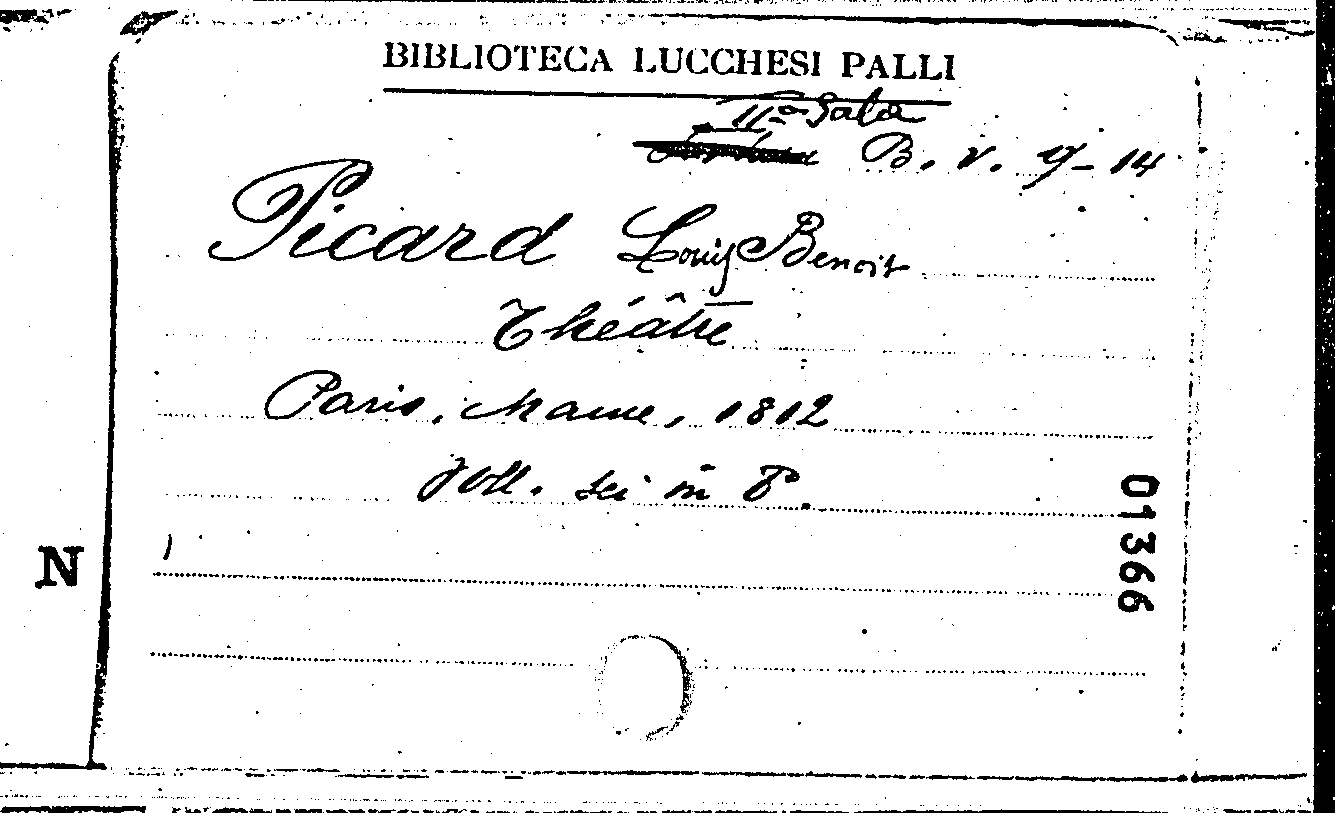 BIBLIOTECA LUCCHESI PALLI
IIª Sala
B. V. 9-14
Picard Louis Benoît
Théâtre
Paris, Mame, 1812
Voll. sei in 8º.
01366
N